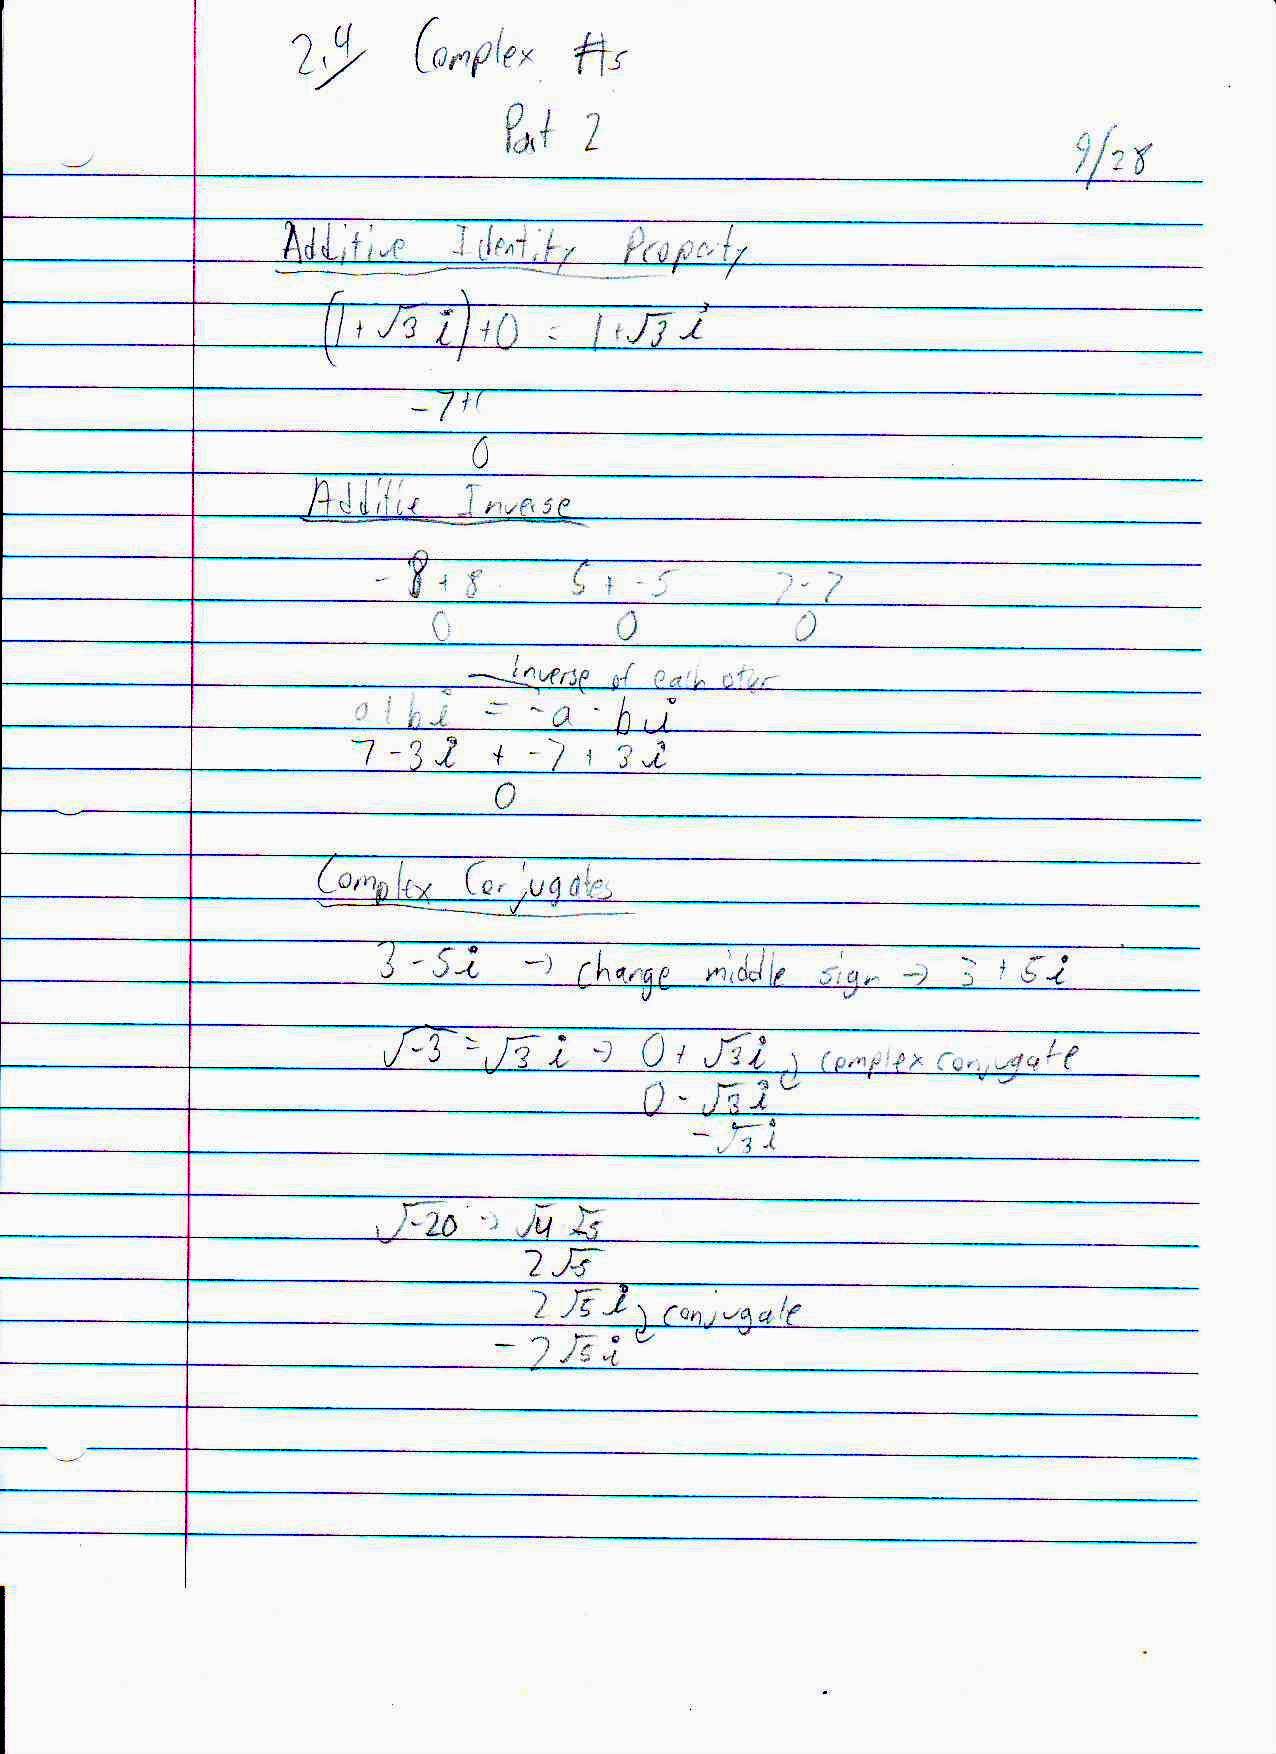 2.4 Complex #s
Part 2
9/28
Additive Identity Property
(1 + √3 i) + 0 = 1 + √3 i
-7 +
0
Additie Inverse
-8 + 8 5 + -5 7 - 7
0 0 0
inverse of each other
a + bi = -a - bi
7 - 3i + -7 + 3i
0
Complex Conjugates
3 - 5i → change middle sign → 3 + 5i
√-3 = √3 i → 0 + √3 i complex conjugate
0 - √3 i
-√3 i
√-20 → √4 √5
2√5
2√5 i conjugate
-2√5 i